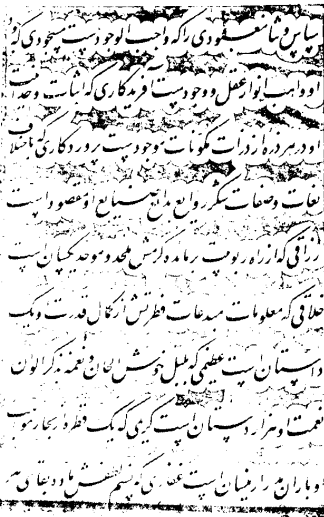 سپاس و ثنا معبودی را که واجب الوجودست مسجودی که
او واهب انوار عقل و وجودست آفریدگاری که اثبات وحدت
او در هر ذره از ذرات مکونات موجودست پروردگاری که باختلاف
لغات و صفات شکر روایع بدایع صنایع او مقصود است
رزاقی که از راه ربوبیت بر مایده کرمش ملحد و موحد یکسان است
خلاقی که معلومات مبدعات فطرتش از کمال قدرت او یک
داستان است عظیمی که بلبل خوش الحان و نغمه بذکر الوان
نعمت او هزار دستان است کریمی که یک قطره از بحار
و باران نیسان است غفوری که نسیم لطفش